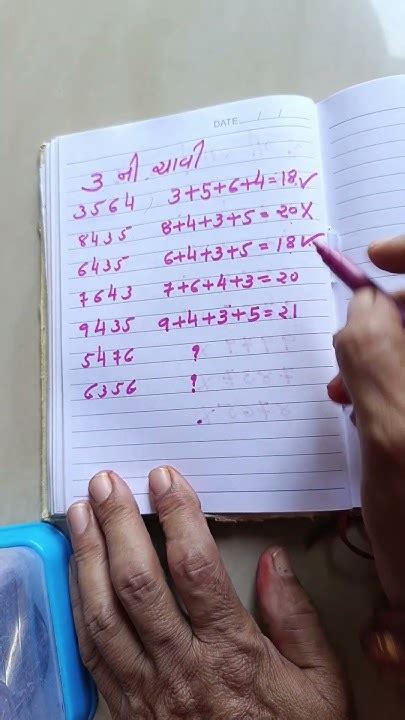 DATE / /
3 ની ચાવી
3564, 3+5+6+4=18 ✓
8435 8+4+3+5=20 X
6435 6+4+3+5=18 ✓
7643 7+6+4+3=20
9435 9+4+3+5=21
5476 ?
6356 ?